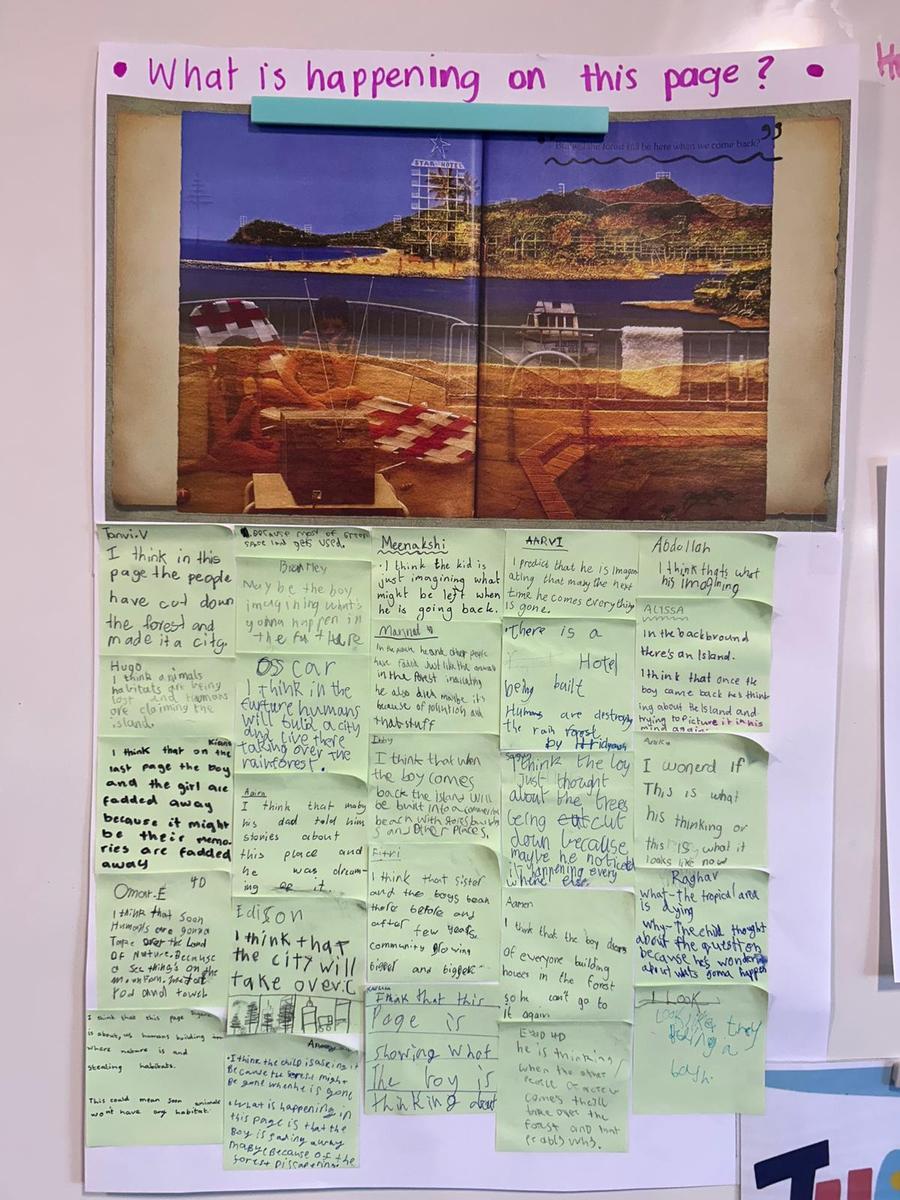 • What is happening on this page? •
"But will the forest still be here when we come back?"
STAR HOTEL
Tanvi.V
I think in this
page the people
have cut down
the forest and
made it a city.
Hugo
I think animals
habitats are being
lost and humans
are claiming the
island.
Kiana
I think that on the
last page the boy
and the girl are
fadded away
because it might
be their memo-
ries are fadded
away
Omar.E 4D
I think that soon
Humans are gonna
Take over the Land
OF Nature. Because
a See things on the
mountain.
rod and towel
I think that this page
is about, us humans building
where nature is and
stealing habitats.
This could mean soon animals
won't have any habitat.
Because most of
space land gets used.
Bradley
Maybe the boy
imagining what's
gonna happen in
the future
Osscar
I think in the
furture humans
will build a city
and live there
taking over the
rainforest.
I think that maby
his dad told him
stories about
this place and
he was dream-
ing of it.
Edison
I think that
the city will
take over.
• I think the child is asking it
Because the forest might
Be gone when he is gone
• What is happening in
this page is that the
Boy is fading away
maby Because of the
forest Dissapearing.
Meenakshi
• I think the kid is
just imagining what
might be left when
he is going back.
have faded Just like the animals
in the forest indicating
he also died maybe it's
because of polution and
that stuff
I think that when
the boy comes
back the island will
be built into a
beach with stores
and Other Places.
Fitri
I think that sister
and the boys been
there before and
after few years
community growing
bigger and bigger
I think that this
Page is
showing what
The boy is
thinking about
AARVI
I predict that he is Imagen
ating that maby the next
time he comes everything
is gone.
There is a
Hotel
being built
Humans are destroy
the rain forest.
by Hridyansh
I think the boy
just thought
about the trees
being cut
down because
maybe he noticed
it happening every
where else.
Aamen
I think that the boy
of everyone building
houses in the forest
so he can't go to
it again
4D
he is thinking
when the other
people
comes they'll
take over the
forest and that
why.
Abdullah
I think thats what
his imagining
ALISSA
In the backbround
there's an Island.
I think that once the
boy came back he's think
ing about the Island and
trying to picture it in his
mind again.
I wonerd If
This is what
his thinking or
this is what it
looks like now
Raghav
what-the tropical area
is dying
why-The child thought
about the question
because he's wondering
about whats gonna happen
I Look
Look like they
a